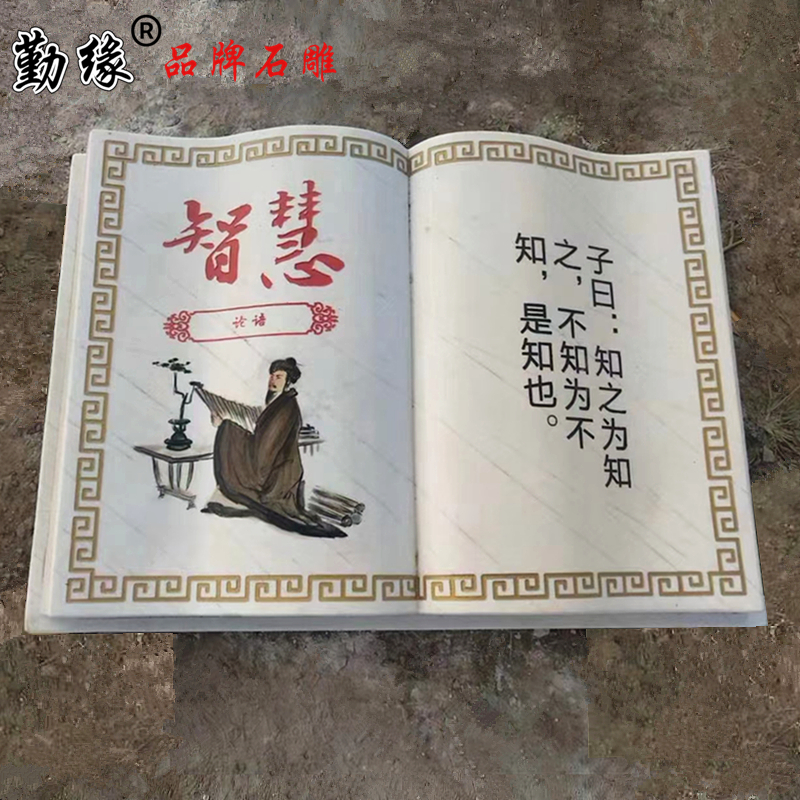 勤缘®
品牌石雕
智慧
论语
子曰：知之为知
之，不知为不
知，是知也。